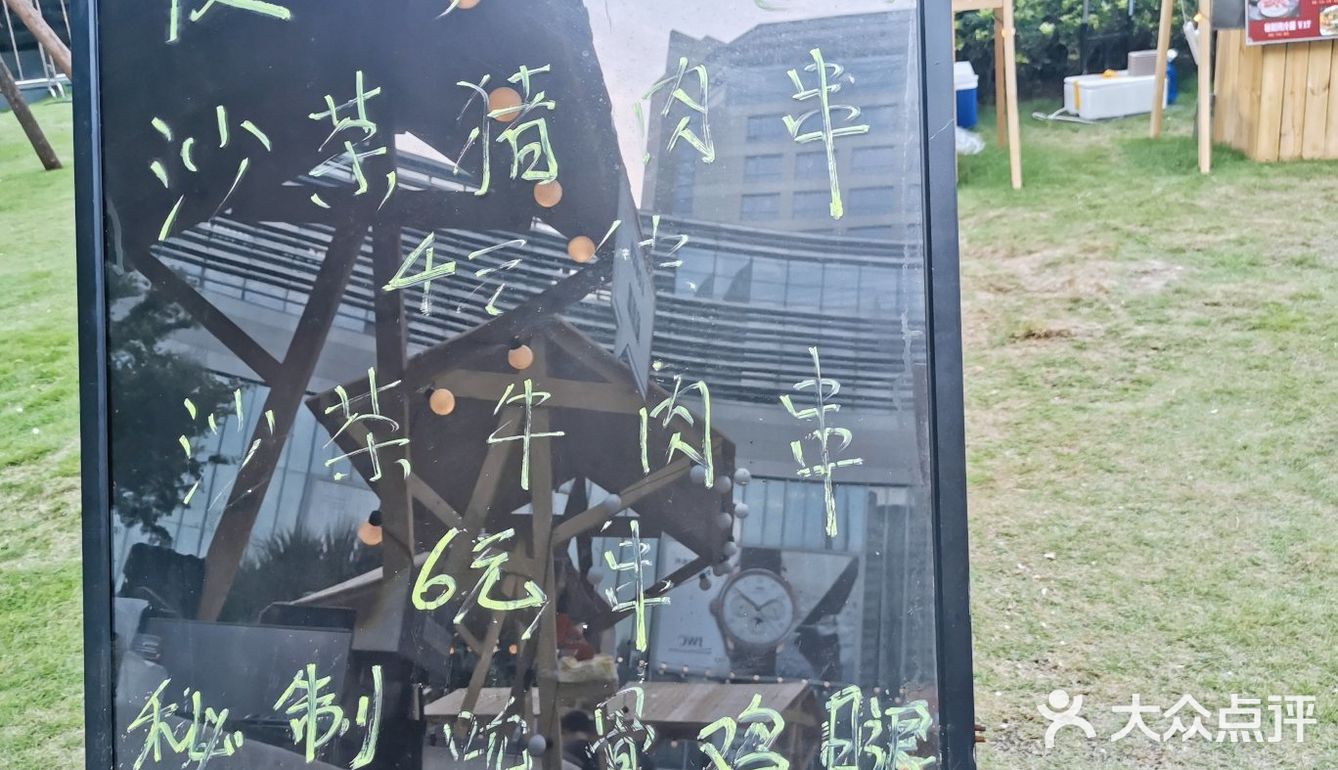 沙茶猪肉串
4元/串
沙茶牛肉串
6元/串
秘制骨鸡腿
IWC
大众点评